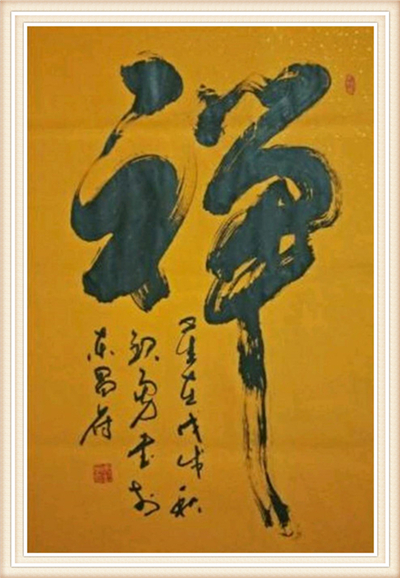 禅
岁在戊戌秋
勇书于
东昌府